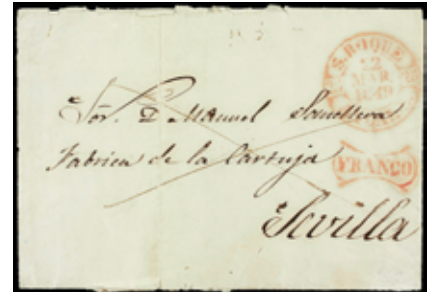 S. ROQUE
22
MAR.
1849
Sór. D. Manuel
Fabrica de la Cartuja
FRANCO
Sevilla